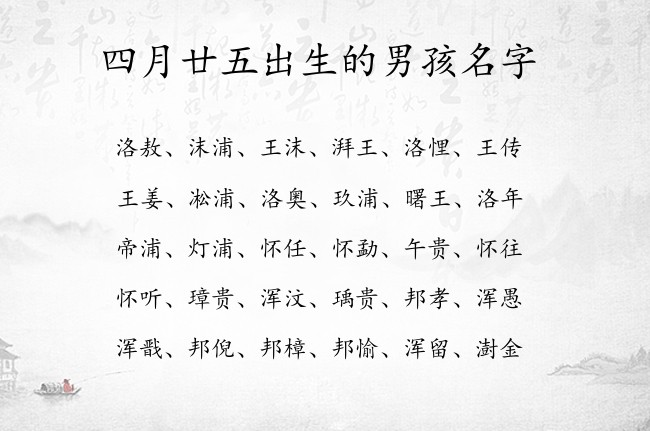 四月廿五出生的男孩名字
洛敖、沫浦、王沫、湃王、洛悝、王传
王姜、凇浦、洛奥、玖浦、曙王、洛年
帝浦、灯浦、怀任、怀勐、午贵、怀往
怀听、璋贵、浑汶、瑀贵、邦孝、浑愚
浑戬、邦倪、邦樟、邦愉、浑留、澍金